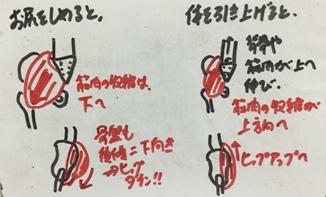 お尻をしめると。
筋肉の収縮は、
下へ
骨盤も
後傾ニ下向き
⇒ヒップ
ダウン!!
体を引き上げると。
背骨や
筋肉が上へ
伸び、
筋肉の収縮が
上方向へ
ヒップアップへ